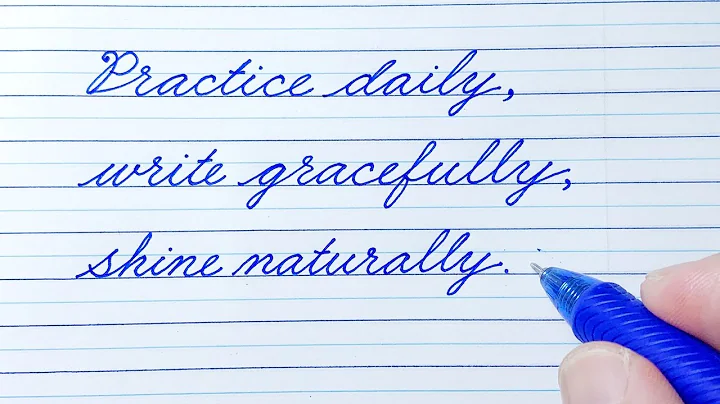 Practice daily,
write gracefully,
shine naturally.